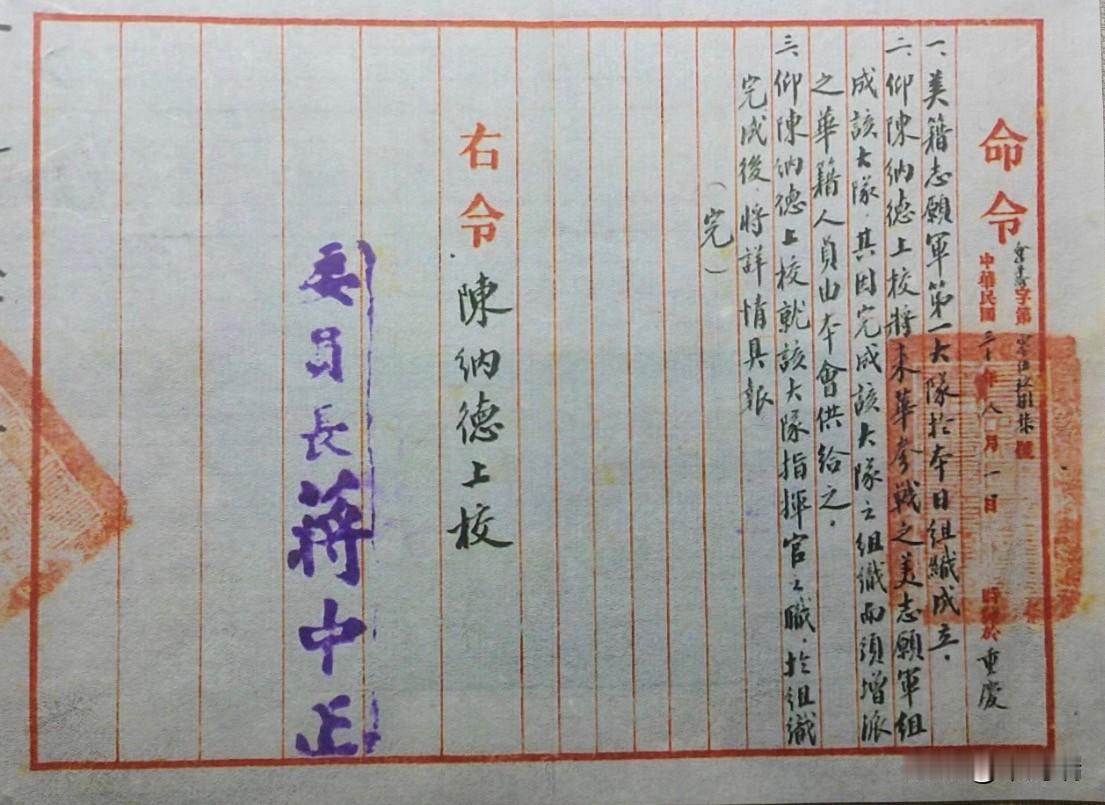 命令
字第 號
中華民國三十年八月一日 時 於重慶
一、美籍志願軍第一大隊於本日組織成立.
二、仰陳納德上校將來華參戰之美志願軍組
成該大隊.其因完成該大隊之組織而須增派
之華籍人員由本會供給之.
三、仰陳納德上校就該大隊指揮官之職.於組織
完成後.將詳情具報
(完)
右令 陳納德上校
委員長蔣中正